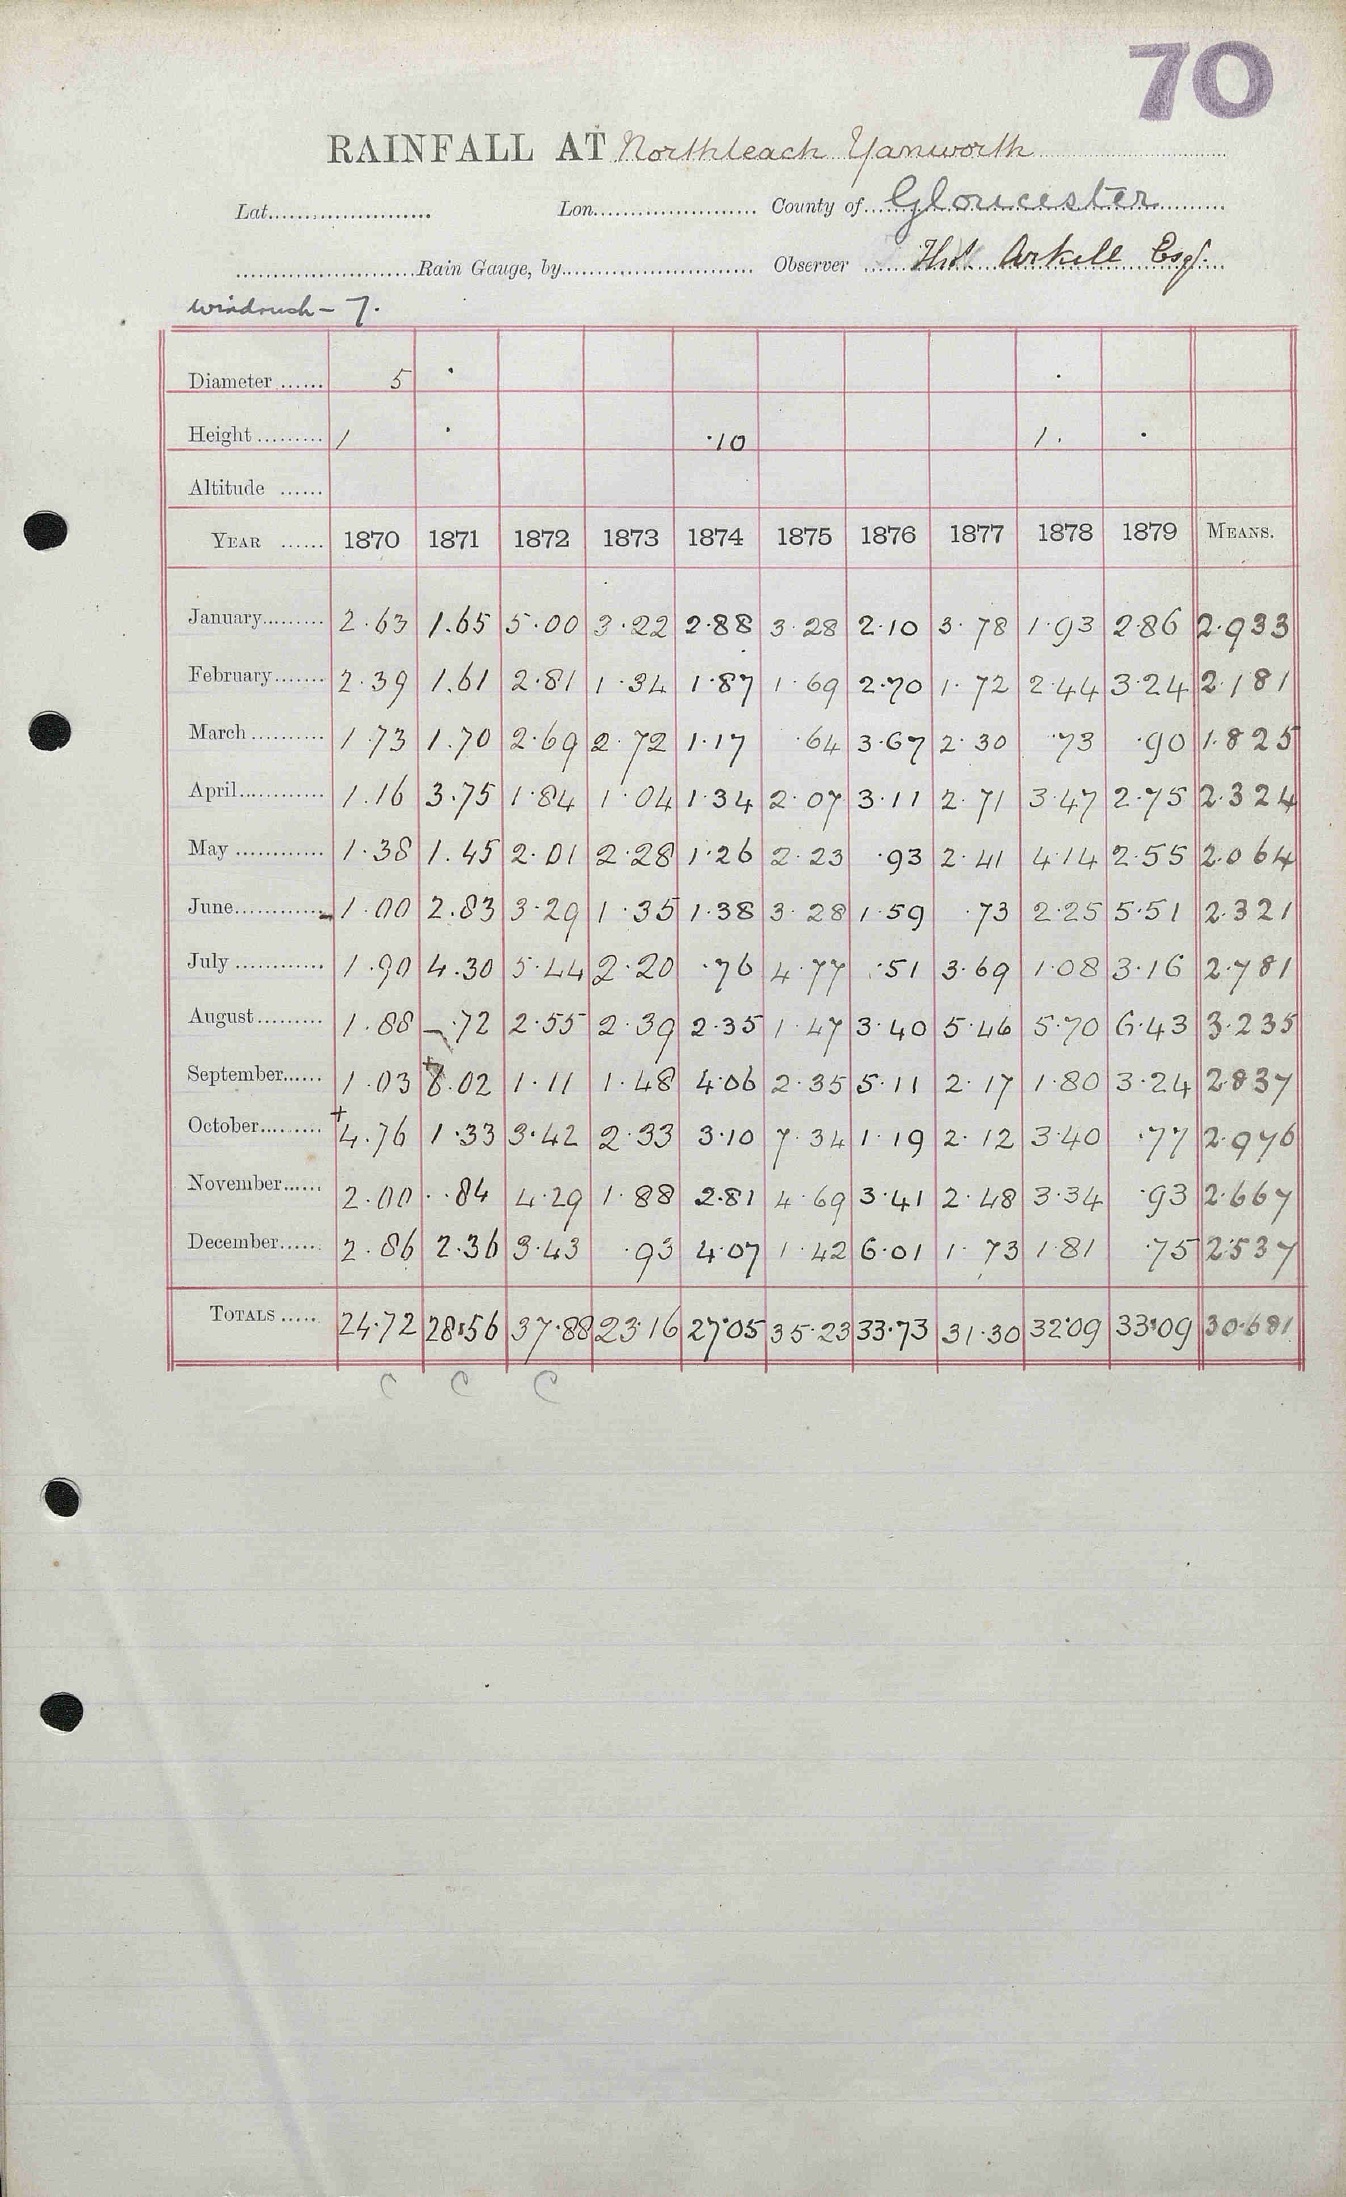 70
RAINFALL AT Northleach Yanworth
Lat...................... Lon...................... County of Gloucester
........................Rain Gauge, by........................ Observer Thos. Arkell Esq.
Windrush - 7.
Diameter ...... 5
Height ......... 1 ·10 1.
Altitude ......
YEAR ...... 1870 1871 1872 1873 1874 1875 1876 1877 1878 1879 MEANS.
January......... 2.63 1.65 5.00 3.22 2.88 3.28 2.10 3.78 1.93 2.86 2.933
February....... 2.39 1.61 2.81 1.34 1.87 1.69 2.70 1.72 2.44 3.24 2.181
March.......... 1.73 1.70 2.69 2.72 1.17 .64 3.67 2.30 .73 .90 1.825
April............ 1.16 3.75 1.84 1.04 1.34 2.07 3.11 2.71 3.47 2.75 2.324
May ............ 1.38 1.45 2.01 2.28 1.26 2.23 .93 2.41 4.14 2.55 2.064
June............ 1.00 2.83 3.29 1.35 1.38 3.28 1.59 .73 2.25 5.51 2.321
July ............ 1.90 4.30 5.44 2.20 .76 4.77 .51 3.69 1.08 3.16 2.781
August......... 1.88 .72 2.55 2.39 2.35 1.47 3.40 5.46 5.70 6.43 3.235
September...... 1.03 + 8.02 1.11 1.48 4.06 2.35 5.11 2.17 1.80 3.24 2.837
October......... + 4.76 1.33 3.42 2.33 3.10 7.34 1.19 2.12 3.40 .77 2.976
November...... 2.00 .84 4.29 1.88 2.81 4.69 3.41 2.48 3.34 .93 2.667
December...... 2.86 2.36 3.43 .93 4.07 1.42 6.01 1.73 1.81 .75 2.537
TOTALS ..... 24.72 28.56 37.88 23.16 27.05 35.23 33.73 31.30 32.09 33.09 30.681
C C C